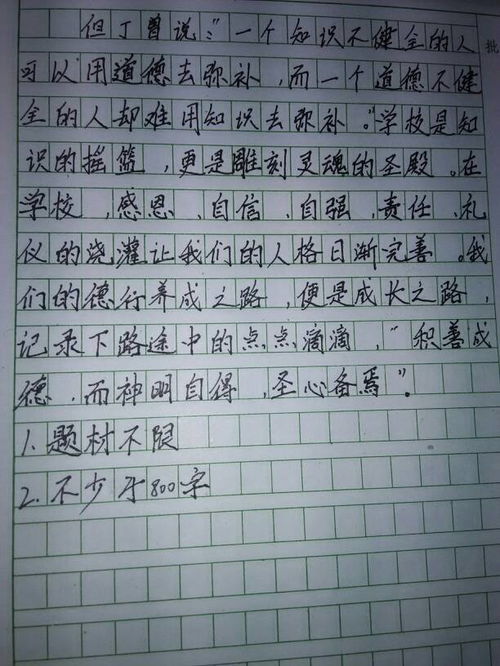 但丁曾说："一个知识不健全的人
可以用道德去弥补，而一个道德不健
全的人却难用知识去弥补。"学校是知
识的摇篮，更是雕刻灵魂的圣殿。在
学校，感恩、自信、自强、责任、礼
仪的浇灌让我们的人格日渐完善。我
们的德行养成之路，便是成长之路，
记录下路途中的点点滴滴，"积善成
德，而神明自得，圣心备焉"。
1.题材不限
2.不少于800字
批